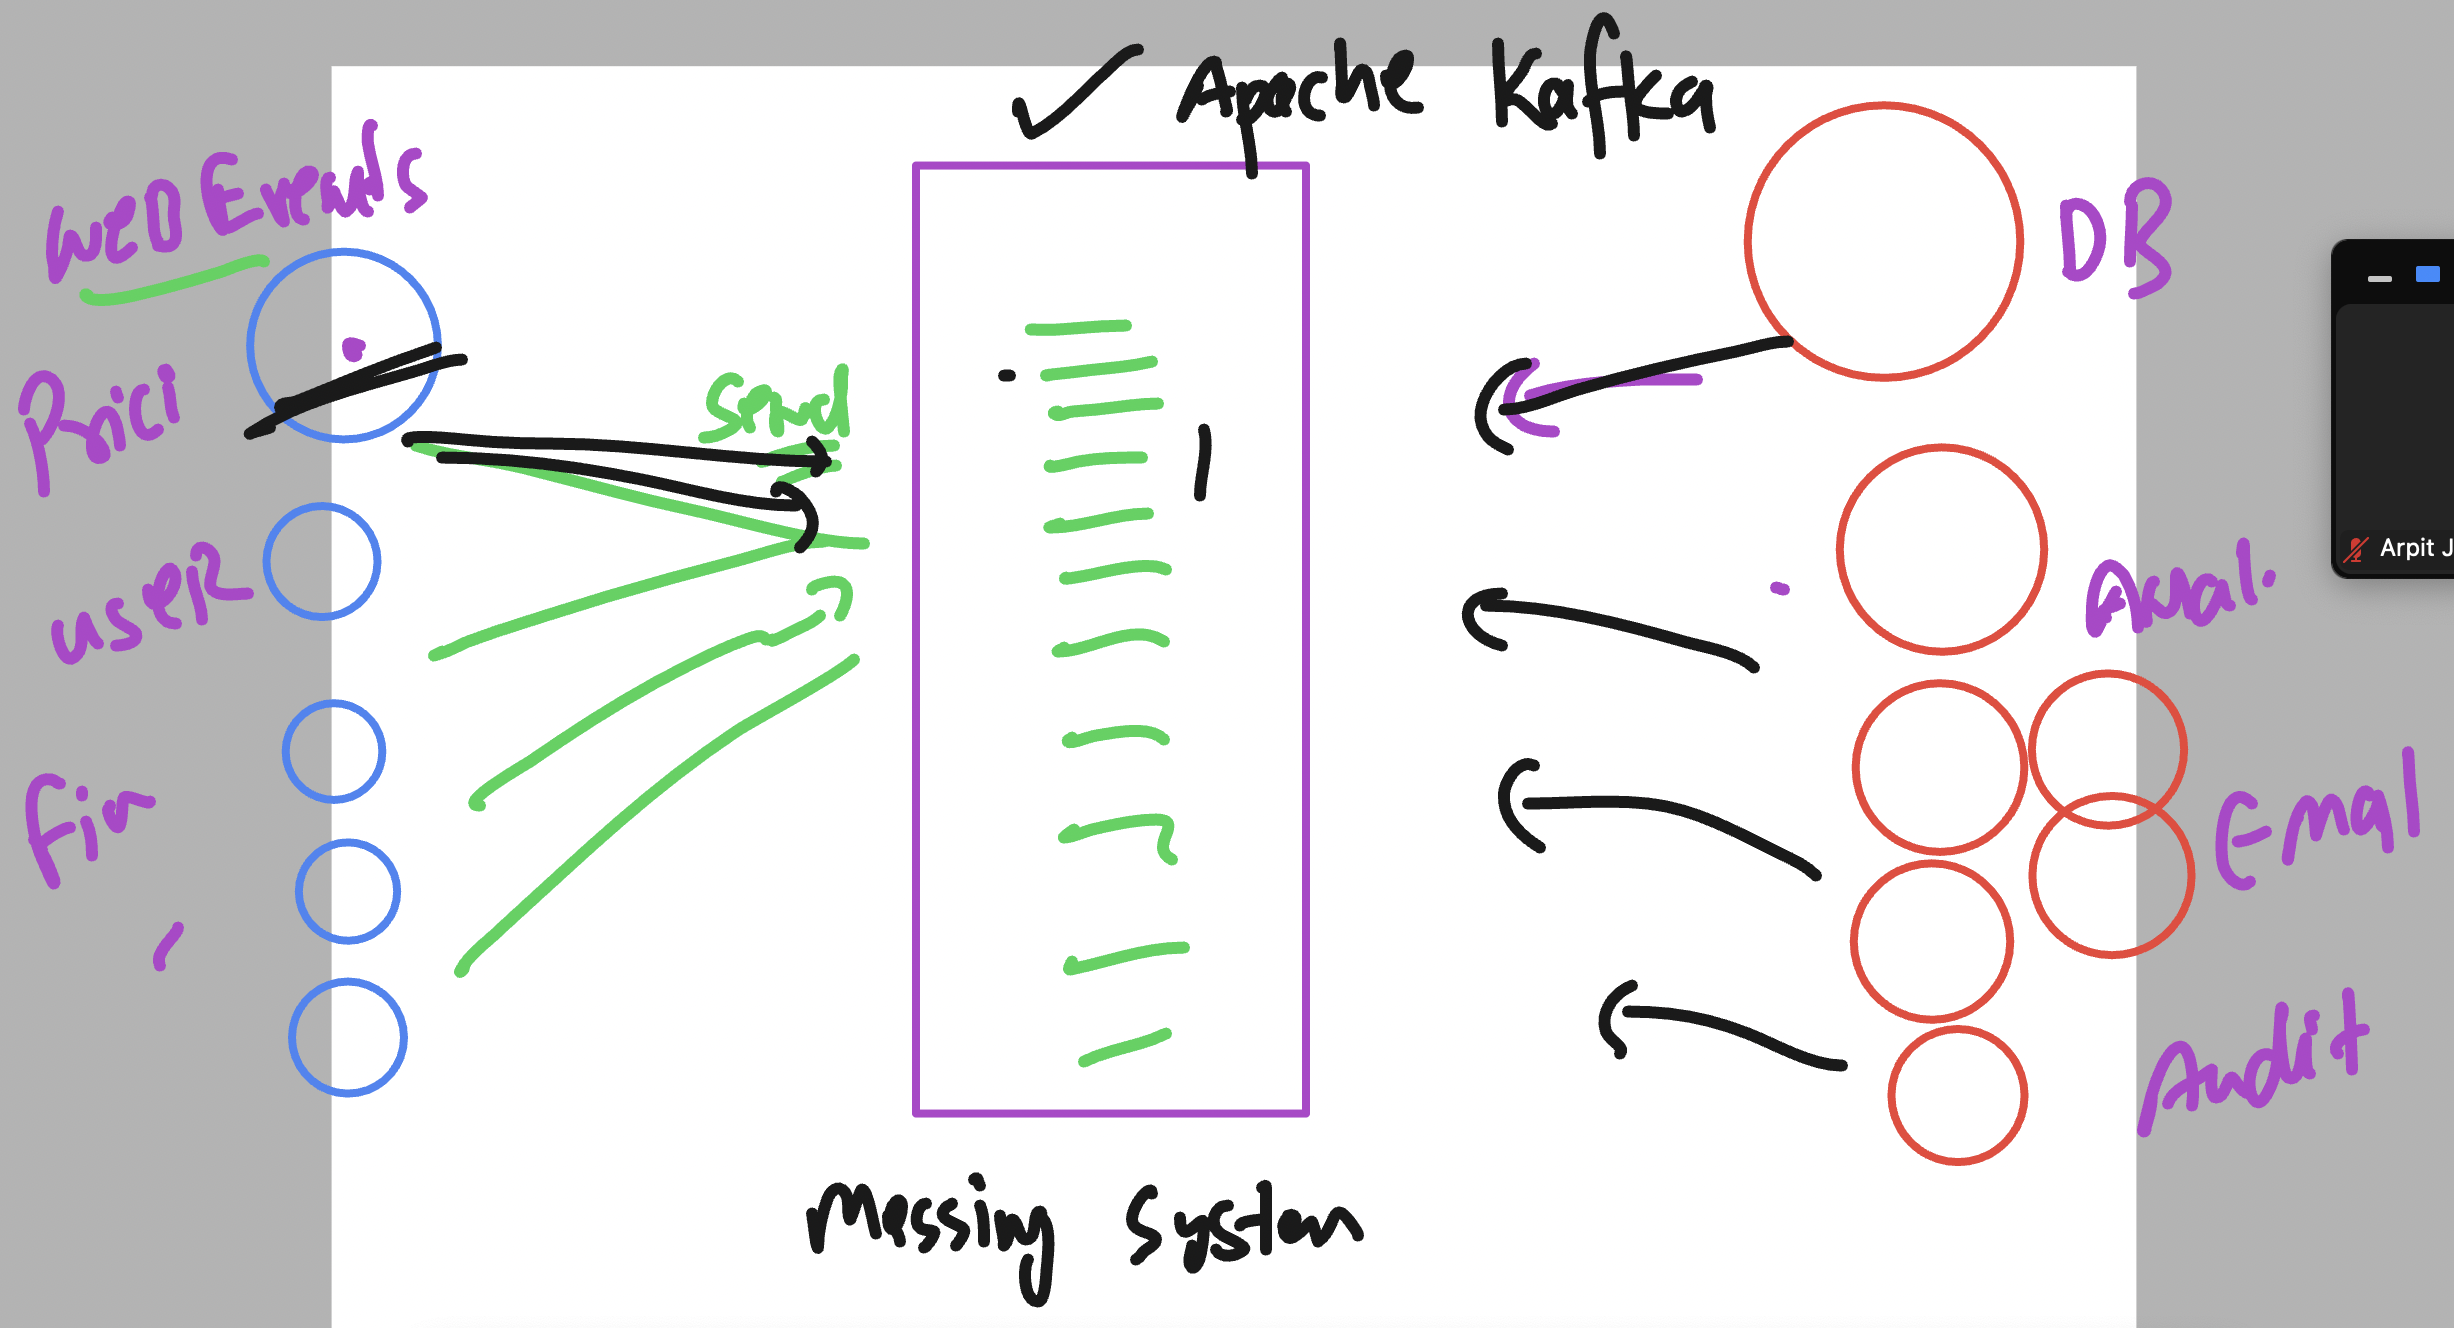 Apache Kafka
Web Events
Prici
user
Fin
Send
DB
Anal.
Email
Audit
Messing System
Arpit J